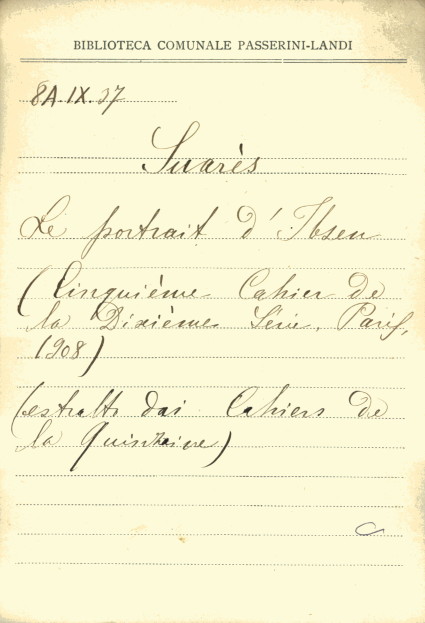 BIBLIOTECA COMUNALE PASSERINI-LANDI
8A.IX.37
Suarès
Le portrait d'Ibsen
(Cinquième Cahier de
la Dixième Série. Paris,
1908)
(estratto dai Cahiers de
la Quinzaine)